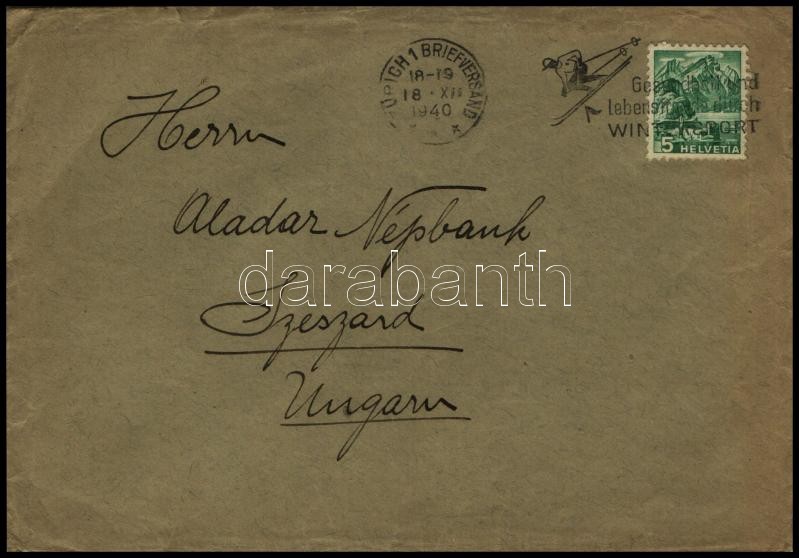 ZÜRICH 1 BRIEFVERSAND
18-19
18 · XII
1940
Gesund und
lebensfroh durch
WINTERSPORT
5 HELVETIA
Herrn
Aladar Népbank
Szeszard
Ungarn
darabanth